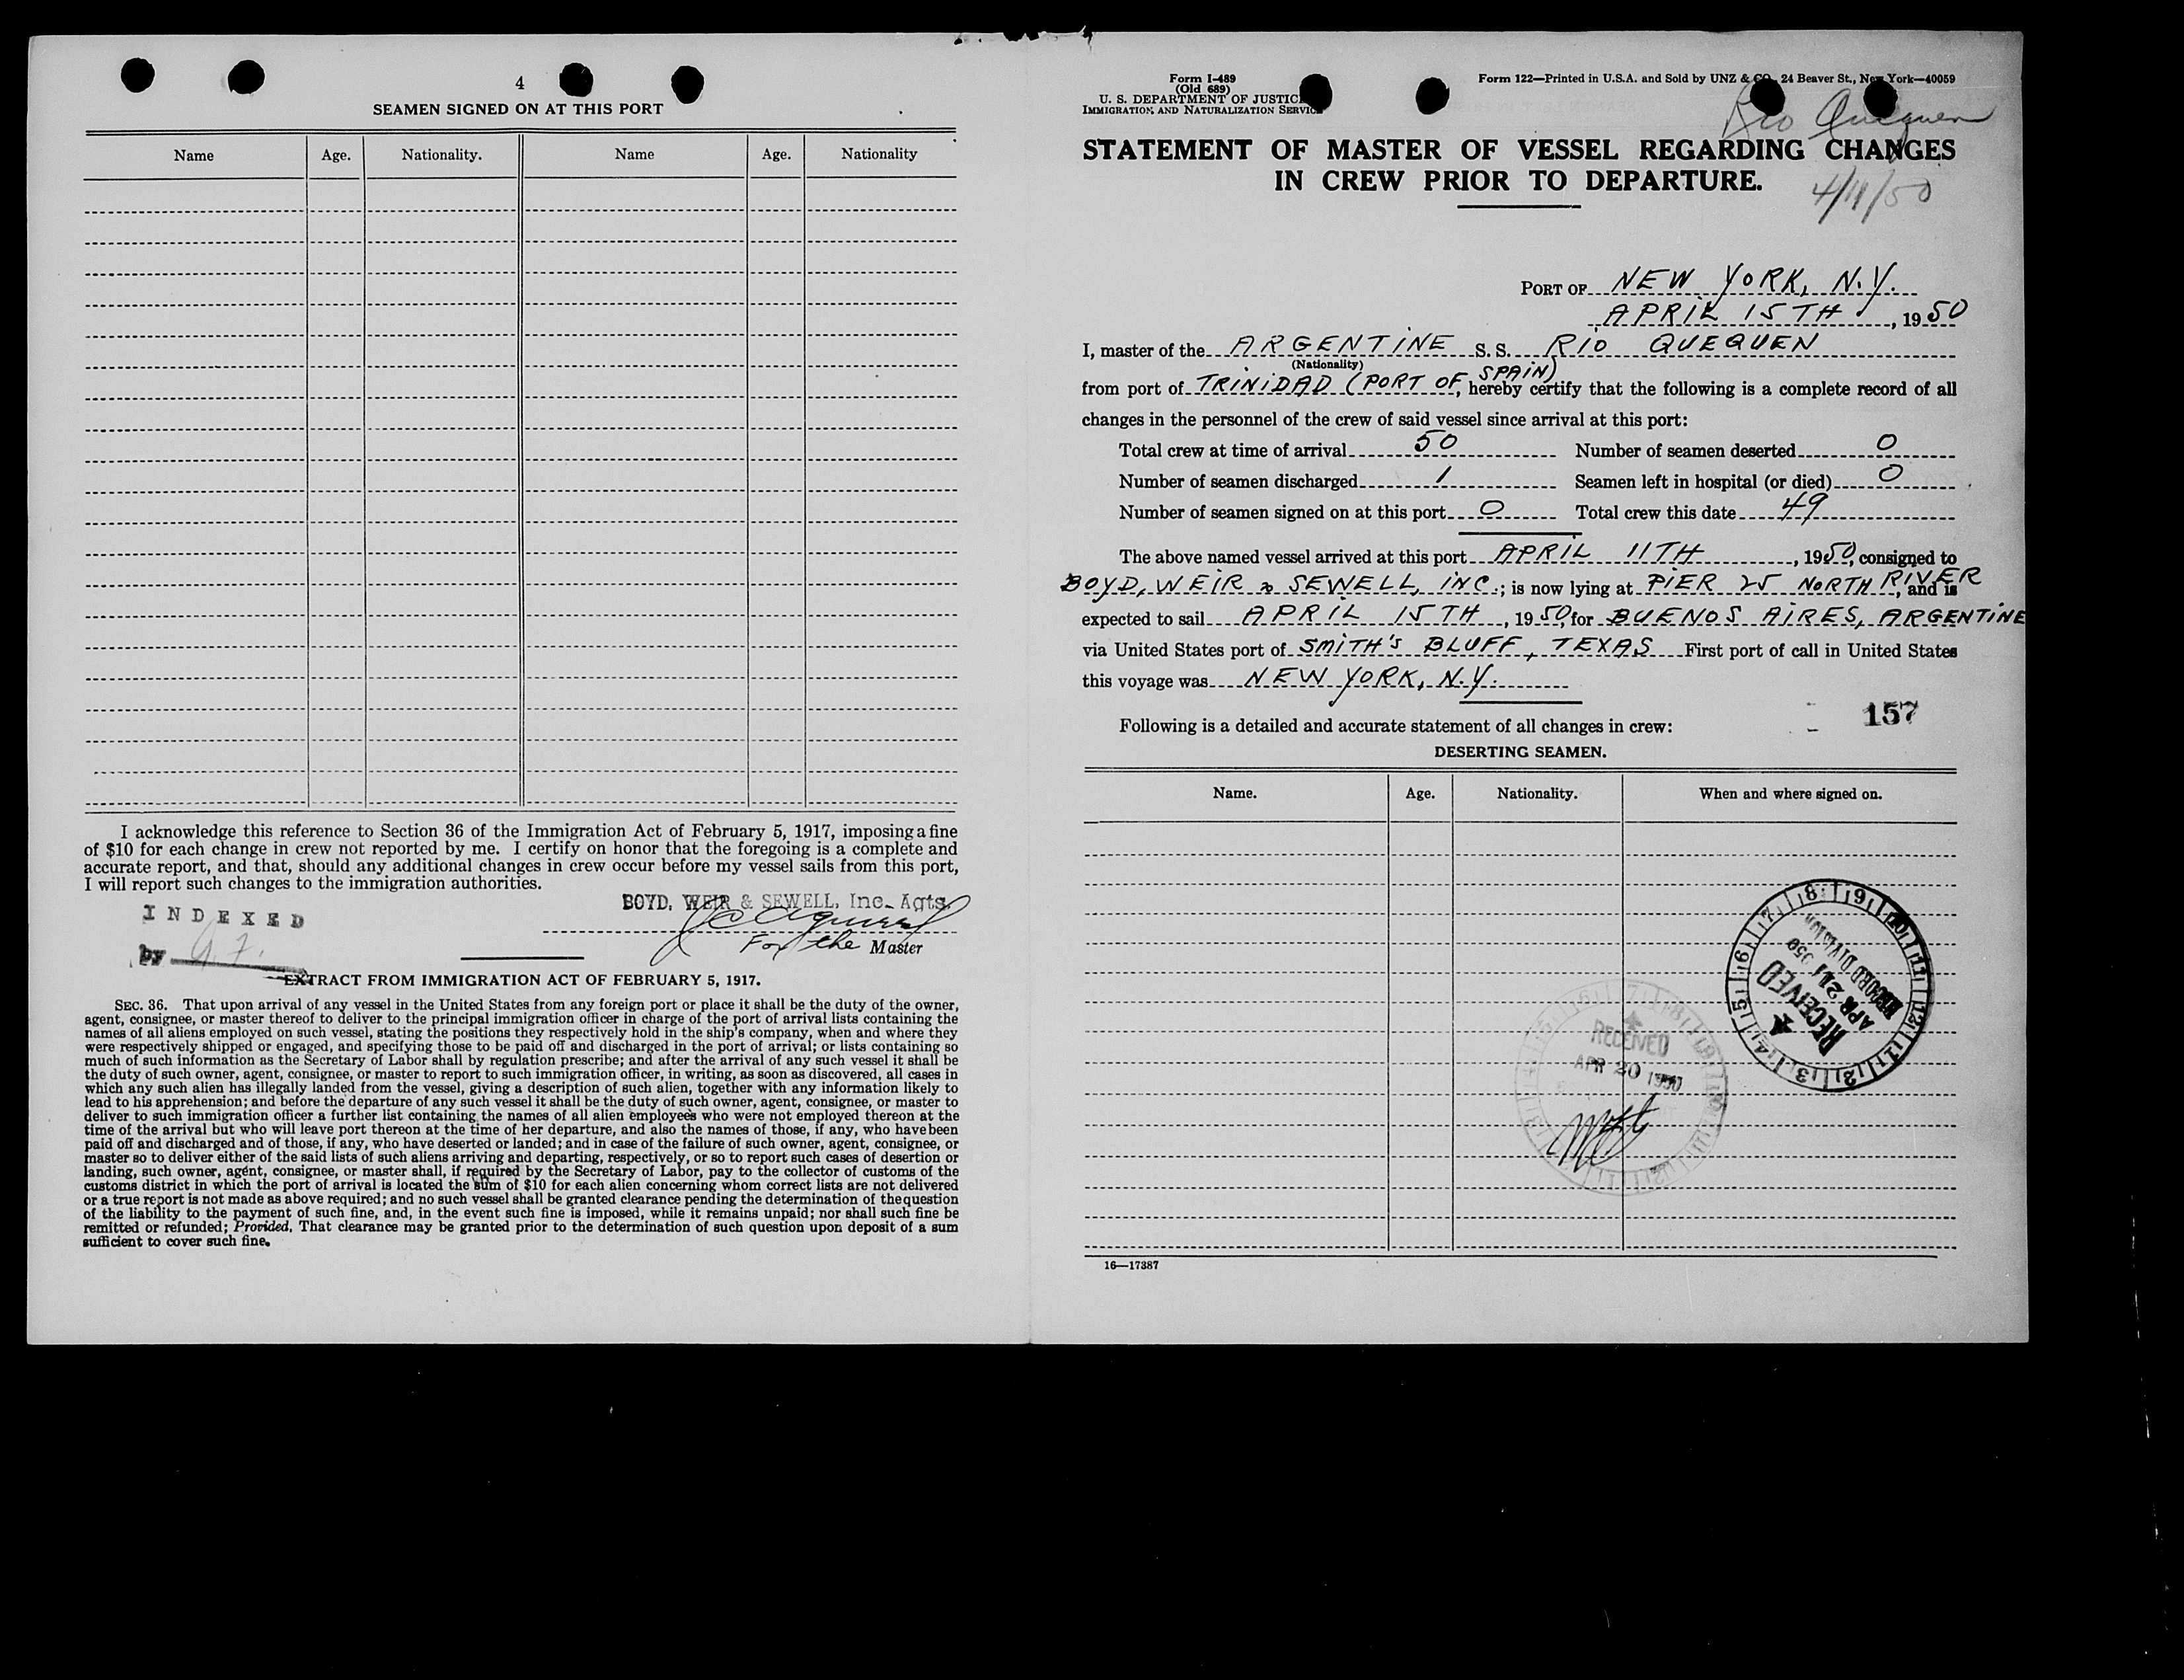 4
SEAMEN SIGNED ON AT THIS PORT
Name Age. Nationality. Name Age. Nationality
I acknowledge this reference to Section 36 of the Immigration Act of February 5, 1917, imposing a fine
of $10 for each change in crew not reported by me. I certify on honor that the foregoing is a complete and
accurate report, and that, should any additional changes in crew occur before my vessel sails from this port,
I will report such changes to the immigration authorities.
BOYD, WEIR & SEWELL, Inc. Agts.
INDEXED
For the Master
by
EXTRACT FROM IMMIGRATION ACT OF FEBRUARY 5, 1917.
SEC. 36. That upon arrival of any vessel in the United States from any foreign port or place it shall be the duty of the owner,
agent, consignee, or master thereof to deliver to the principal immigration officer in charge of the port of arrival lists containing the
names of all aliens employed on such vessel, stating the positions they respectively hold in the ship's company, when and where they
were respectively shipped or engaged, and specifying those to be paid off and discharged in the port of arrival; or lists containing so
much of such information as the Secretary of Labor shall by regulation prescribe; and after the arrival of any such vessel it shall be
the duty of such owner, agent, consignee, or master to report to such immigration officer, in writing, as soon as discovered, all cases in
which any such alien has illegally landed from the vessel, giving a description of such alien, together with any information likely to
lead to his apprehension; and before the departure of any such vessel it shall be the duty of such owner, agent, consignee, or master to
deliver to such immigration officer a further list containing the names of all alien employees who were not employed thereon at the
time of the arrival but who will leave port thereon at the time of her departure, and also the names of those, if any, who have been
paid off and discharged and of those, if any, who have deserted or landed; and in case of the failure of such owner, agent, consignee, or
master so to deliver either of the said lists of such aliens arriving and departing, respectively, or so to report such cases of desertion or
landing, such owner, agent, consignee, or master shall, if required by the Secretary of Labor, pay to the collector of customs of the
customs district in which the port of arrival is located the sum of $10 for each alien concerning whom correct lists are not delivered
or a true report is not made as above required; and no such vessel shall be granted clearance pending the determination of the question
of the liability to the payment of such fine, and, in the event such fine is imposed, while it remains unpaid; nor shall such fine be
remitted or refunded; Provided, That clearance may be granted prior to the determination of such question upon deposit of a sum
sufficient to cover such fine.
Form I-489
(Old 689)
U. S. DEPARTMENT OF JUSTICE
IMMIGRATION AND NATURALIZATION SERVICE
Form 122—Printed in U.S.A. and Sold by UNZ & CO. 24 Beaver St., New York—40059
Rio Quequen
STATEMENT OF MASTER OF VESSEL REGARDING CHANGES
IN CREW PRIOR TO DEPARTURE.
4/11/50
PORT OF NEW YORK, N.Y.
APRIL 15TH, 1950
I, master of the ARGENTINE S. S. RIO QUEQUEN
(Nationality)
from port of TRINIDAD (PORT OF SPAIN), hereby certify that the following is a complete record of all
changes in the personnel of the crew of said vessel since arrival at this port:
Total crew at time of arrival 50 Number of seamen deserted 0
Number of seamen discharged 1 Seamen left in hospital (or died) 0
Number of seamen signed on at this port 0 Total crew this date 49
The above named vessel arrived at this port APRIL 11TH, 1950, consigned to
BOYD, WEIR & SEWELL, INC.; is now lying at PIER 25 NORTH RIVER, and is
expected to sail APRIL 15TH, 1950, for BUENOS AIRES, ARGENTINE
via United States port of SMITH'S BLUFF, TEXAS First port of call in United States
this voyage was NEW YORK, N.Y.
157
Following is a detailed and accurate statement of all changes in crew:
DESERTING SEAMEN.
Name. Age. Nationality. When and where signed on.
RECEIVED
APR 21 1950
RECORD DIVISION
RECEIVED
APR 20 1950
16—17387